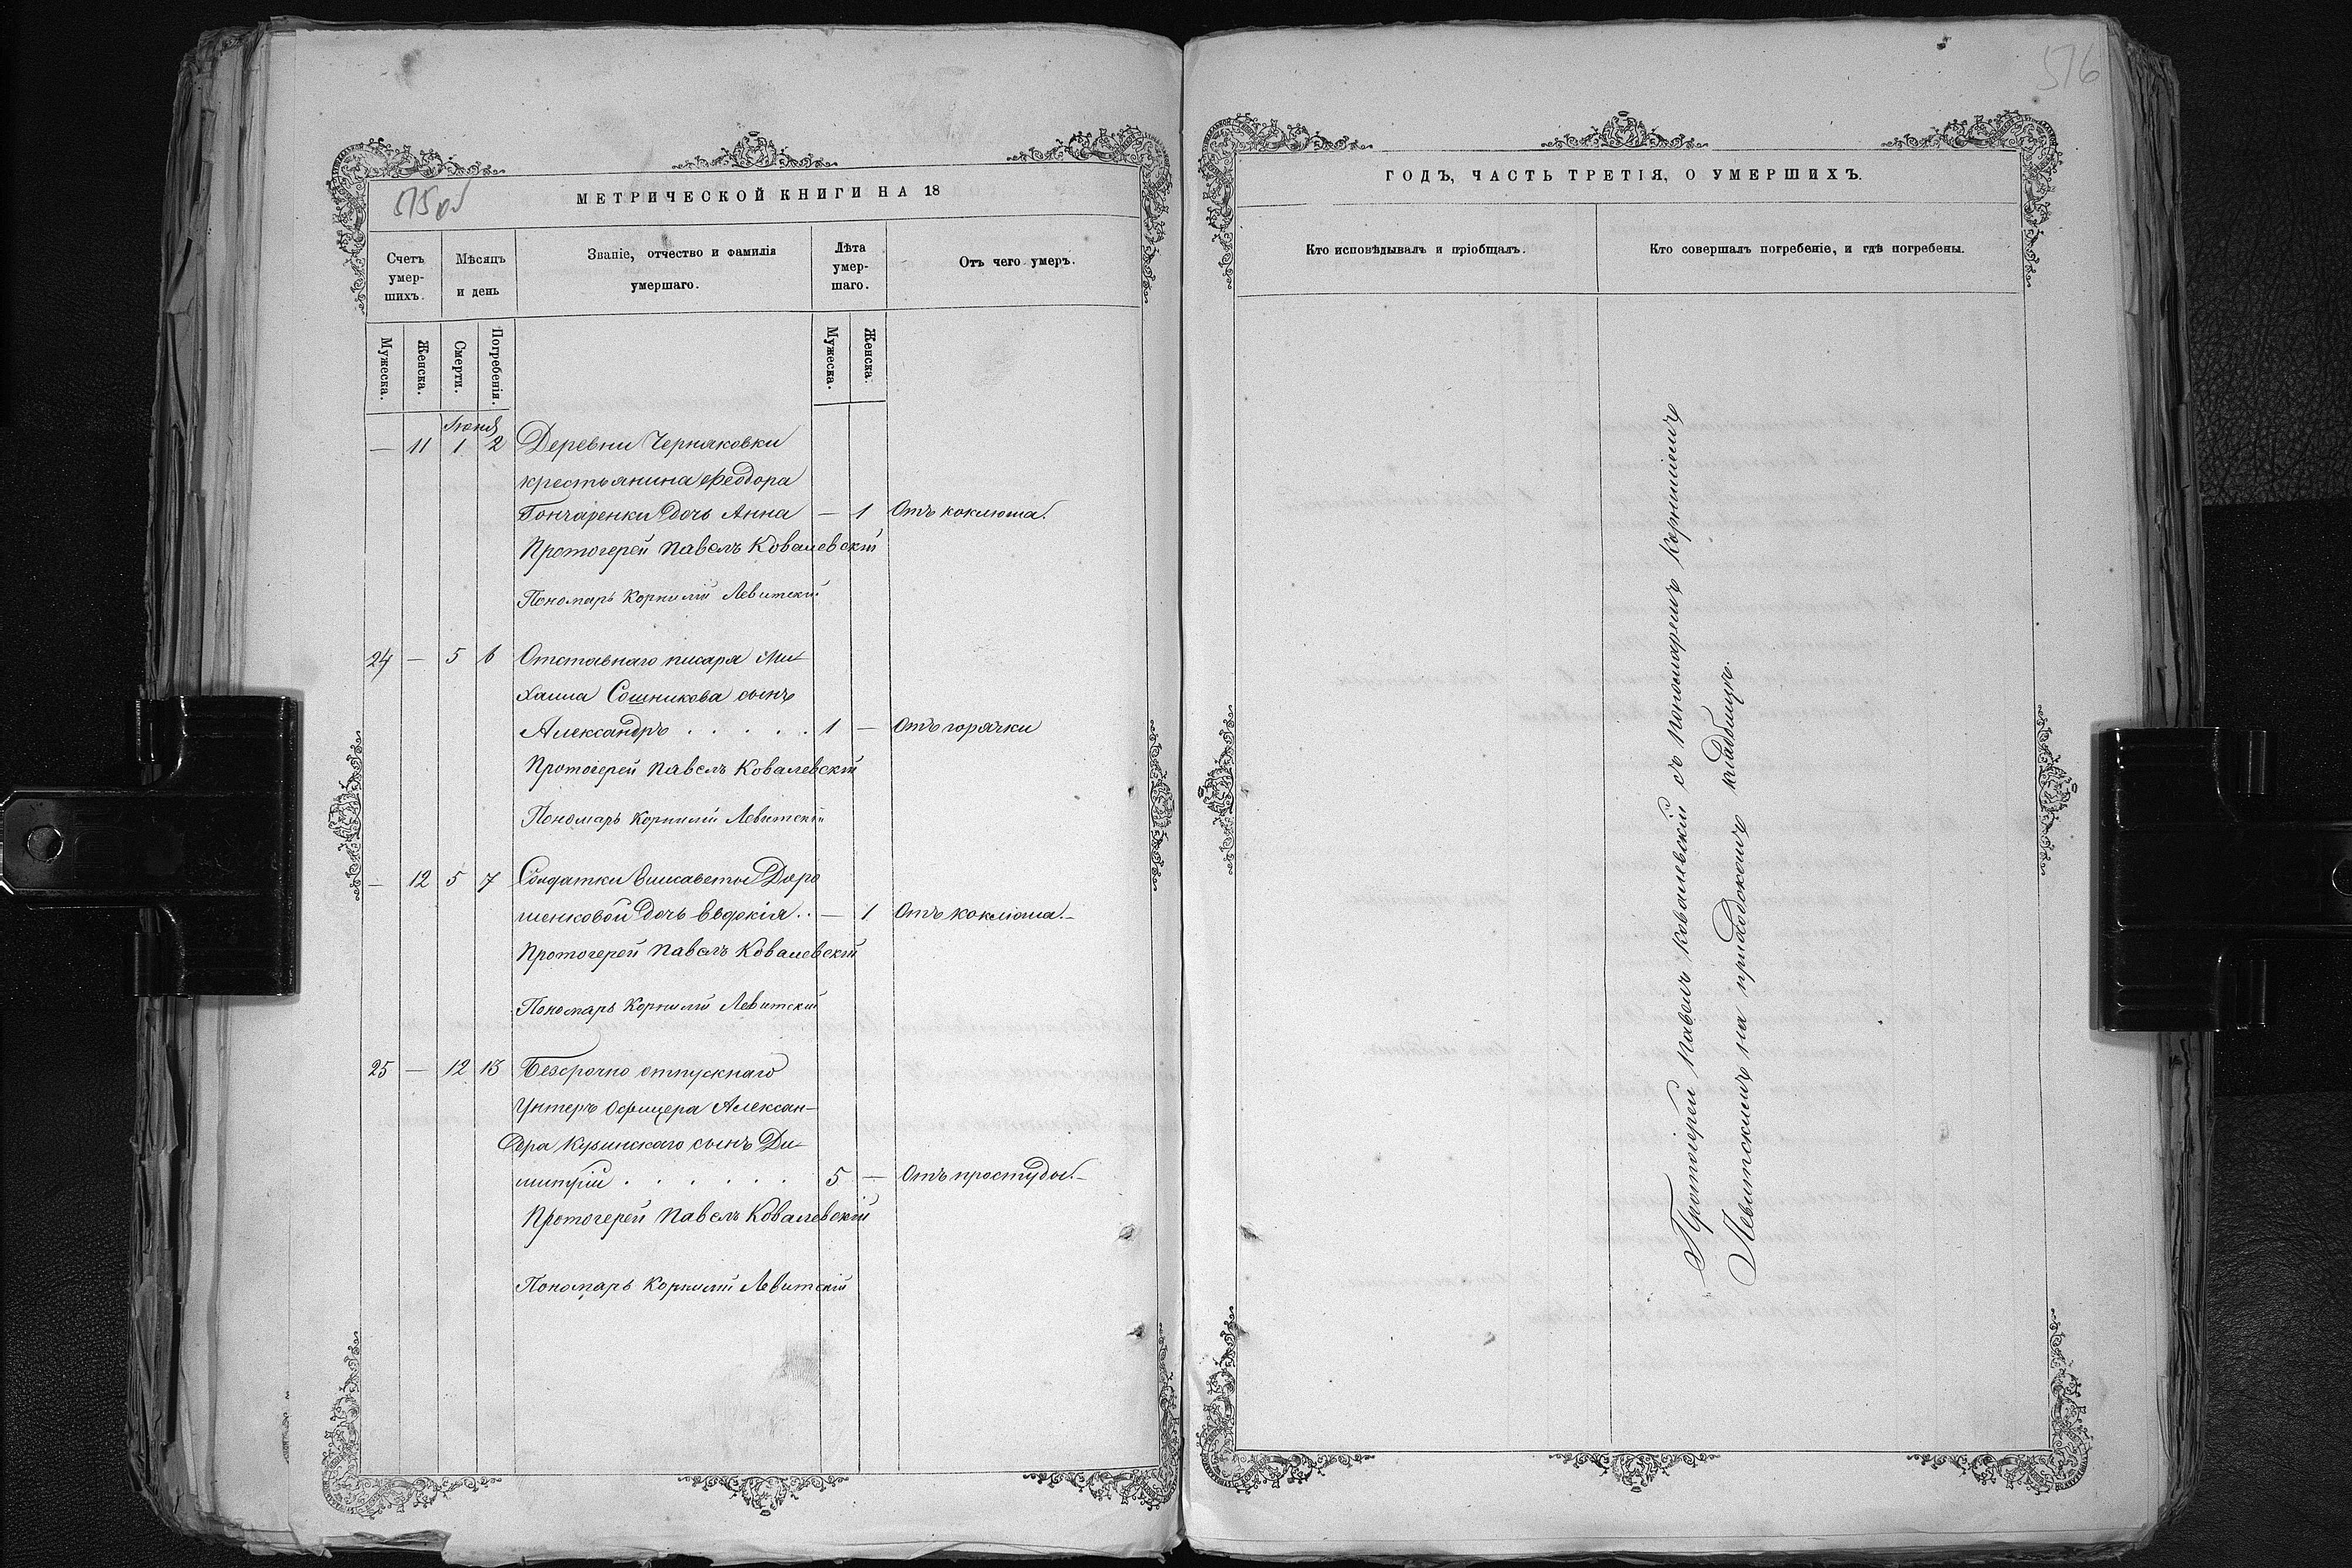 515 об
МЕТРИЧЕСКОЙ КНИГИ НА 18
Счетъ умер-шихъ.
Мѣсяцъ и день
Званіе, отчество и фамилія умершаго.
Лѣта умер-шаго.
Отъ чего умеръ.
Мужеска.
Женска.
Смерти.
Погребенія.
Мужеска.
Женска.
Іюня
— 11 1 2 Деревни Черняковки
крестьянина Феодора
Гончаренки дочь Анна — 1 Отъ коклюша.
Протоіерей Павелъ Ковалевскій
Пономарь Корнилій Левитскій
24 — 5 6 Отставнаго писаря Ми-
хаила Сошникова сынъ
Александръ . . . . . 1 — Отъ горячки
Протоіерей Павелъ Ковалевскій
Пономарь Корнилій Левитскій
— 12 5 7 Солдатки Елисаветы Доро
шенковой дочь Евдокія . . — 1 Отъ коклюша. —
Протоіерей Павелъ Ковалевскій
Пономарь Корнилій Левитскій
25 — 12 13 Безсрочно отпускнаго
Унтеръ Офицера Алексан-
дра Кузинскаго сынъ Ди-
митрій . . . . . . 5 — Отъ простуды. —
Протоіерей Павелъ Ковалевскій
Пономарь Корнилій Левитскій
516
ГОДЪ, ЧАСТЬ ТРЕТІЯ, О УМЕРШИХЪ.
Кто исповѣдывалъ и пріобщалъ.
Кто совершалъ погребеніе, и гдѣ погребены.
Протоіерей Павелъ Ковалевскій съ пономаремъ Корниліемъ
Левитскимъ на приходскомъ кладбищѣ.